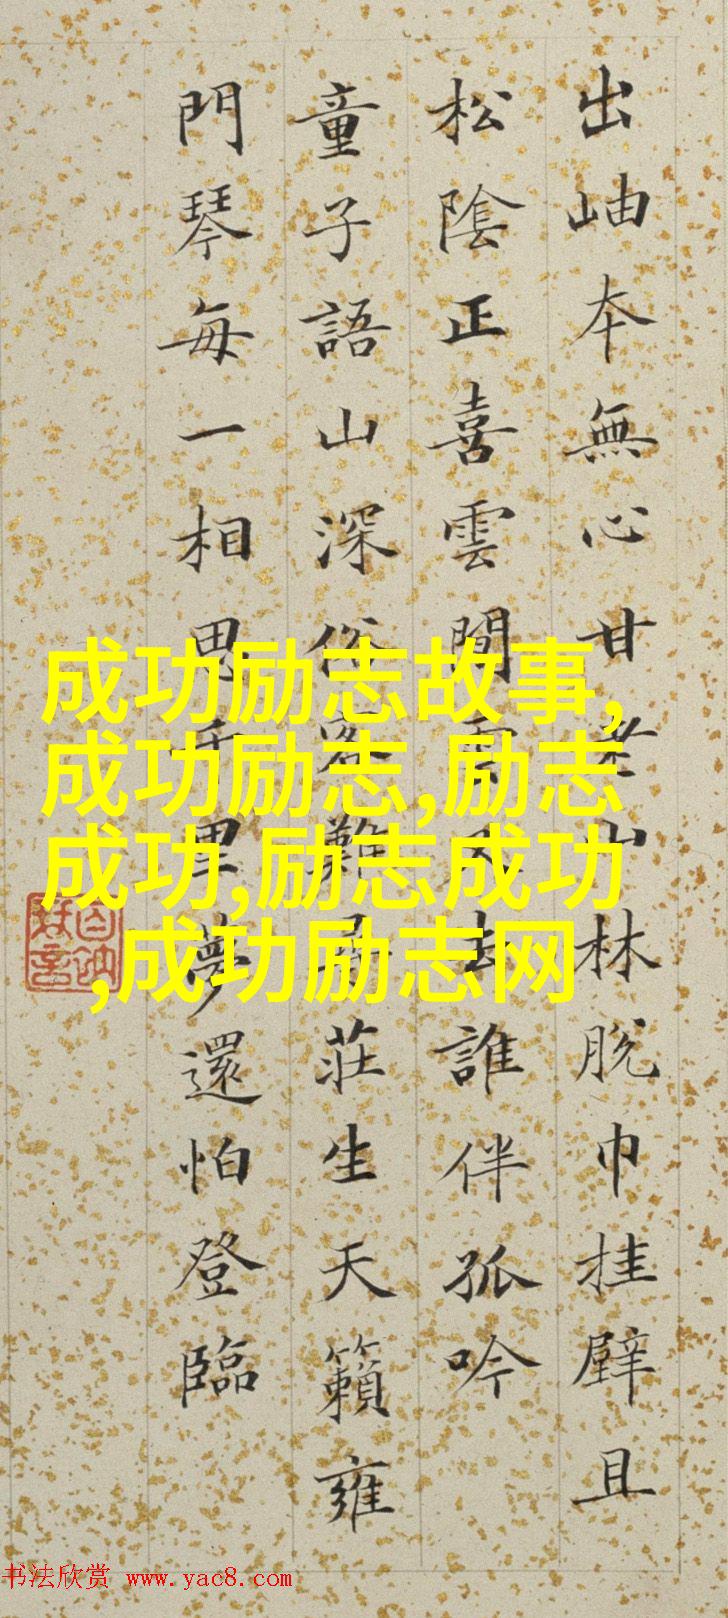 出岫本無心甘老山林脫巾挂壁且
松陰正喜雲閒雲又去誰伴孤吟
童子語山深俗客難尋莊生天籟雍
門琴每一相思千里夢還怕登臨
成功励志故事,
成功励志,励志
成功,励志成功
,成功励志网
书法欣赏 www.yac8.com